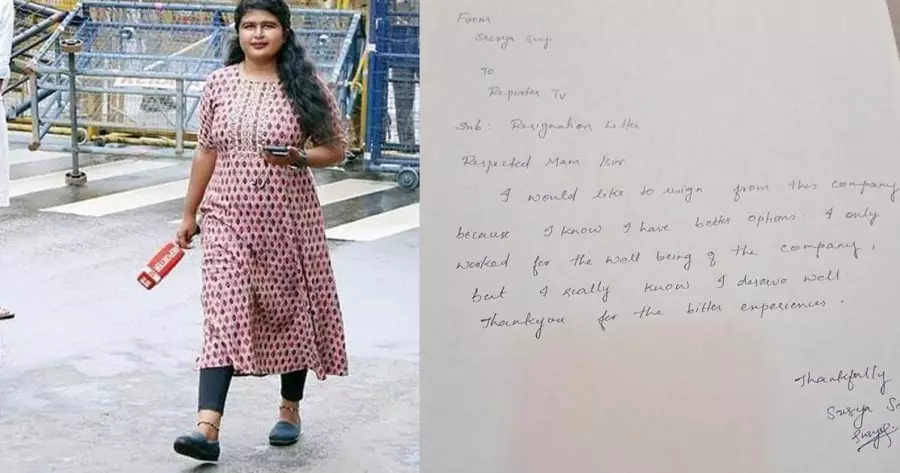 REPORTER
From
To
Reporter Tv
Sub: Resignation Letter
Respected Mam /Sir
I would like to resign from this company
because I know I have better options. I only
worked for the well being of the company,
but I really know I deserve well.
Thankyou for the bitter experiences.
Thankfully